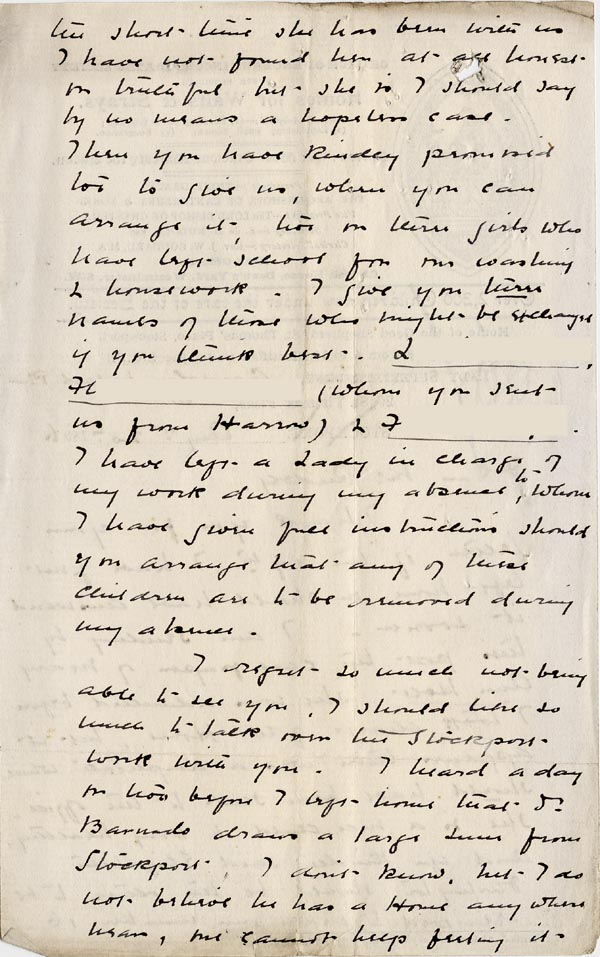 the short time she has been with us
I have not found her at all honest
or truthful but she is I should say
by no means a hopeless case.
Then you have kindly promised
too to give us, when you can
arrange it, two or three girls who
have left school for our washing
& housework. I give you three
names of those who might be exchanged
if you think best. L
H
(whom you sent
us from Harrow) & F
I have left a Lady in charge of
my work during my absence, to whom
I have given full instructions should
you arrange that any of these
children are to be removed during
my absence.
I regret so much not being
able to see you, I should like so
much to talk over the Stockport
work with you. I heard a day
or two before I left home that Dr
Barnado draws a large sum from
Stockport, I don't know, but I do
not believe he has a Home anywhere
near, one cannot help feeling it